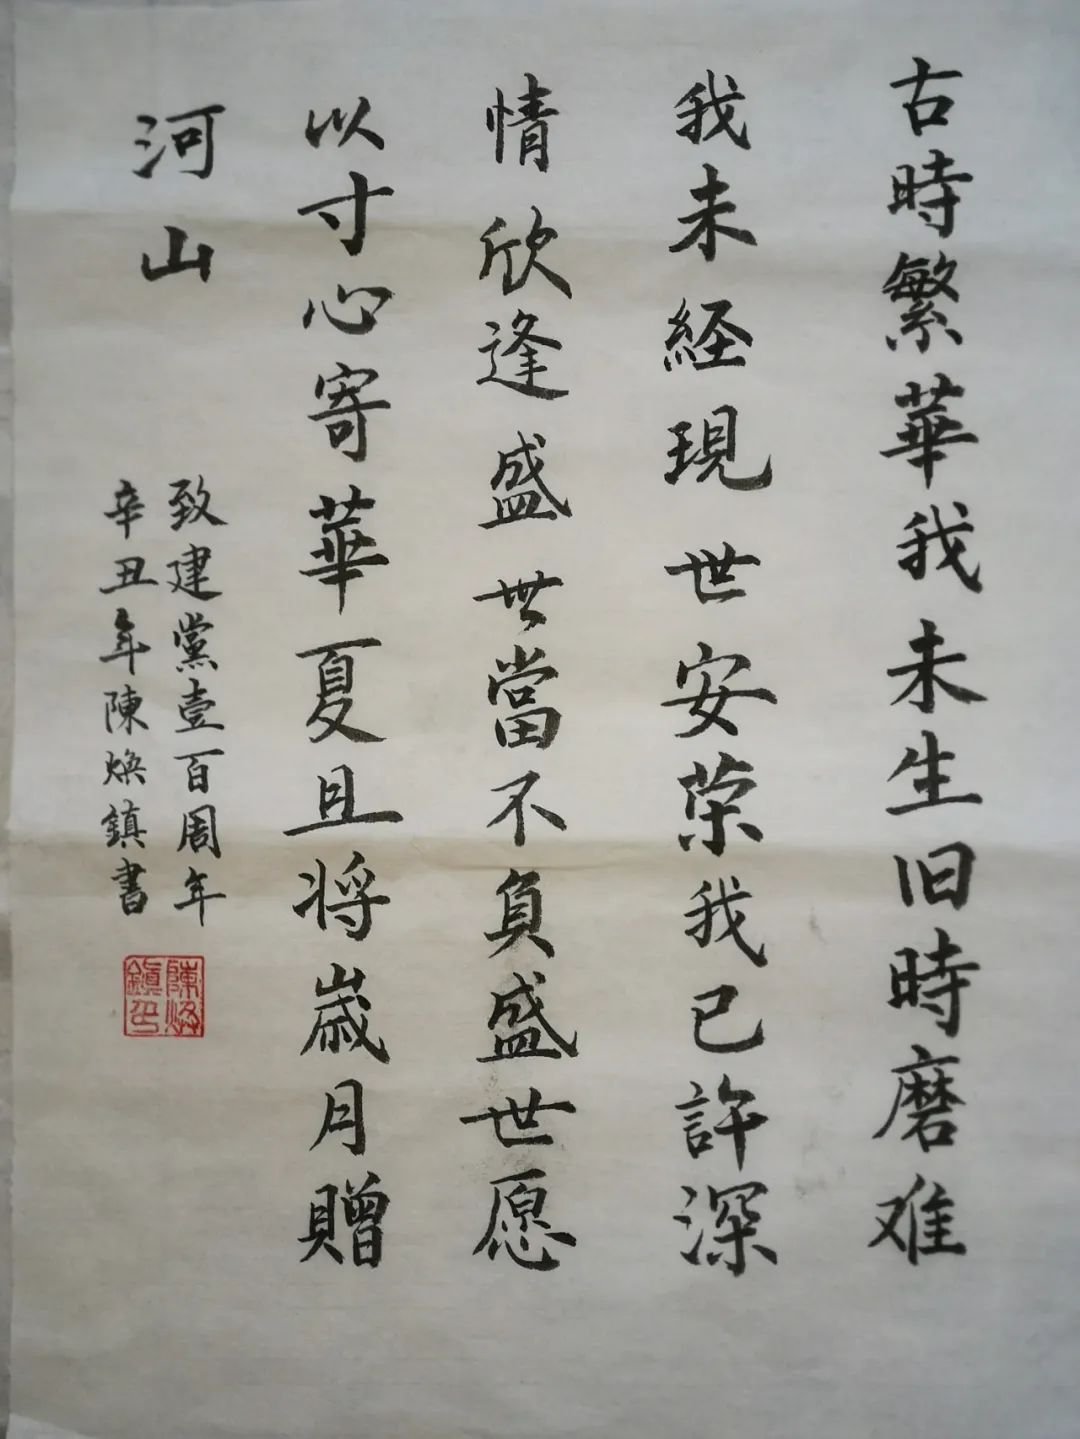 古時繁華我未生旧時磨难
我未経現世安荣我已許深
情欣逢盛世當不負盛世愿
以寸心寄華夏且将歲月贈
河山
致建黨壹百周年
辛丑年陳焕鎮書
陳焕
鎮印